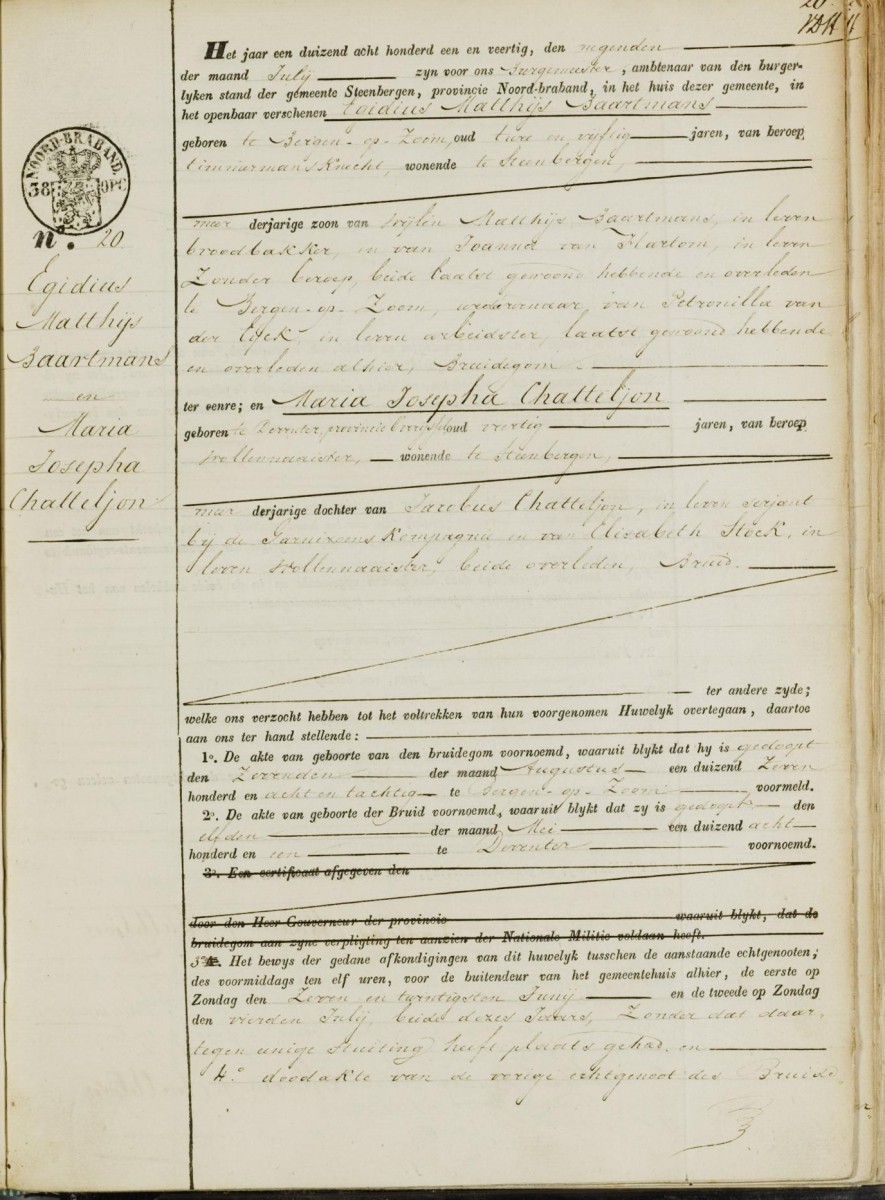 20
Het jaar een duizend acht honderd een en veertig, den negenden
der maand Julij zyn voor ons Burgemeester, ambtenaar van den burger-
lyken stand der gemeente Steenbergen, provincie Noord-braband, in het huis dezer gemeente, in
het openbaar verschenen Egidius Matthijs Baartmans
geboren te Bergen-op-Zoom, oud twee en vyftig jaren, van beroep
timmermansknecht, wonende te Steenbergen,
NOORD-BRABAND.
38 OPC
n.° 20
Egidius
Matthijs
Baartmans
en
Maria
Josepha
Chatteljon
meer derjarige zoon van wijlen Matthijs Baartmans, in leven
broodbakker, en van Joanna van Hartom, in leven
Zonder beroep, beide laatst gewoond hebbende en overleden
te Bergen-op-Zoom, weduwenaar van Petronilla van
der Eijck, in leven arbeidster, laatst gewoond hebbende
en overleden alhier, Bruidegom
ter eenre; en Maria Josepha Chatteljon
geboren te Deventer, provincie Overijssel oud veertig jaren, van beroep
wollennaaister, wonende te Steenbergen,
meer derjarige dochter van Jacobus Chatteljon, in leven serjant
bij de Garnizoens Kompagnie en van Elizabeth Stock, in
leven wollennaaister, beide overleden, Bruid.
ter andere zyde;
welke ons verzocht hebben tot het voltrekken van hun voorgenomen Huwelyk overtegaan, daartoe
aan ons ter hand stellende:
1°. De akte van geboorte van den bruidegom voornoemd, waaruit blykt dat hy is gedoopt
den Zevenden der maand Augustus een duizend Zeven
honderd en acht en tachtig te Bergen-op-Zoom voormeld.
2°. De akte van geboorte der Bruid voornoemd, waaruit blykt dat zy is gedoopt den
elfden der maand Mei een duizend acht
honderd en een te Deventer voornoemd.
3°. Een certificaat afgegeven den
door den Heer Gouverneur der provincie waaruit blykt, dat de
bruidegom aan zyne verpligting ten aanzien der Nationale Militie voldaan heeft.
3° Het bewys der gedane afkondigingen van dit huwelyk tusschen de aanstaande echtgenooten;
des voormiddags ten elf uren, voor de buitendeur van het gemeentehuis alhier, de eerste op
Zondag den Zeven en twintigsten Junij en de tweede op Zondag
den vierden Julij, beide dezes Jaars, Zonder dat daar-
tegen eenige stuiting heeft plaats gehad, en
4.° doodakte van de vorige echtgenoot des Bruide